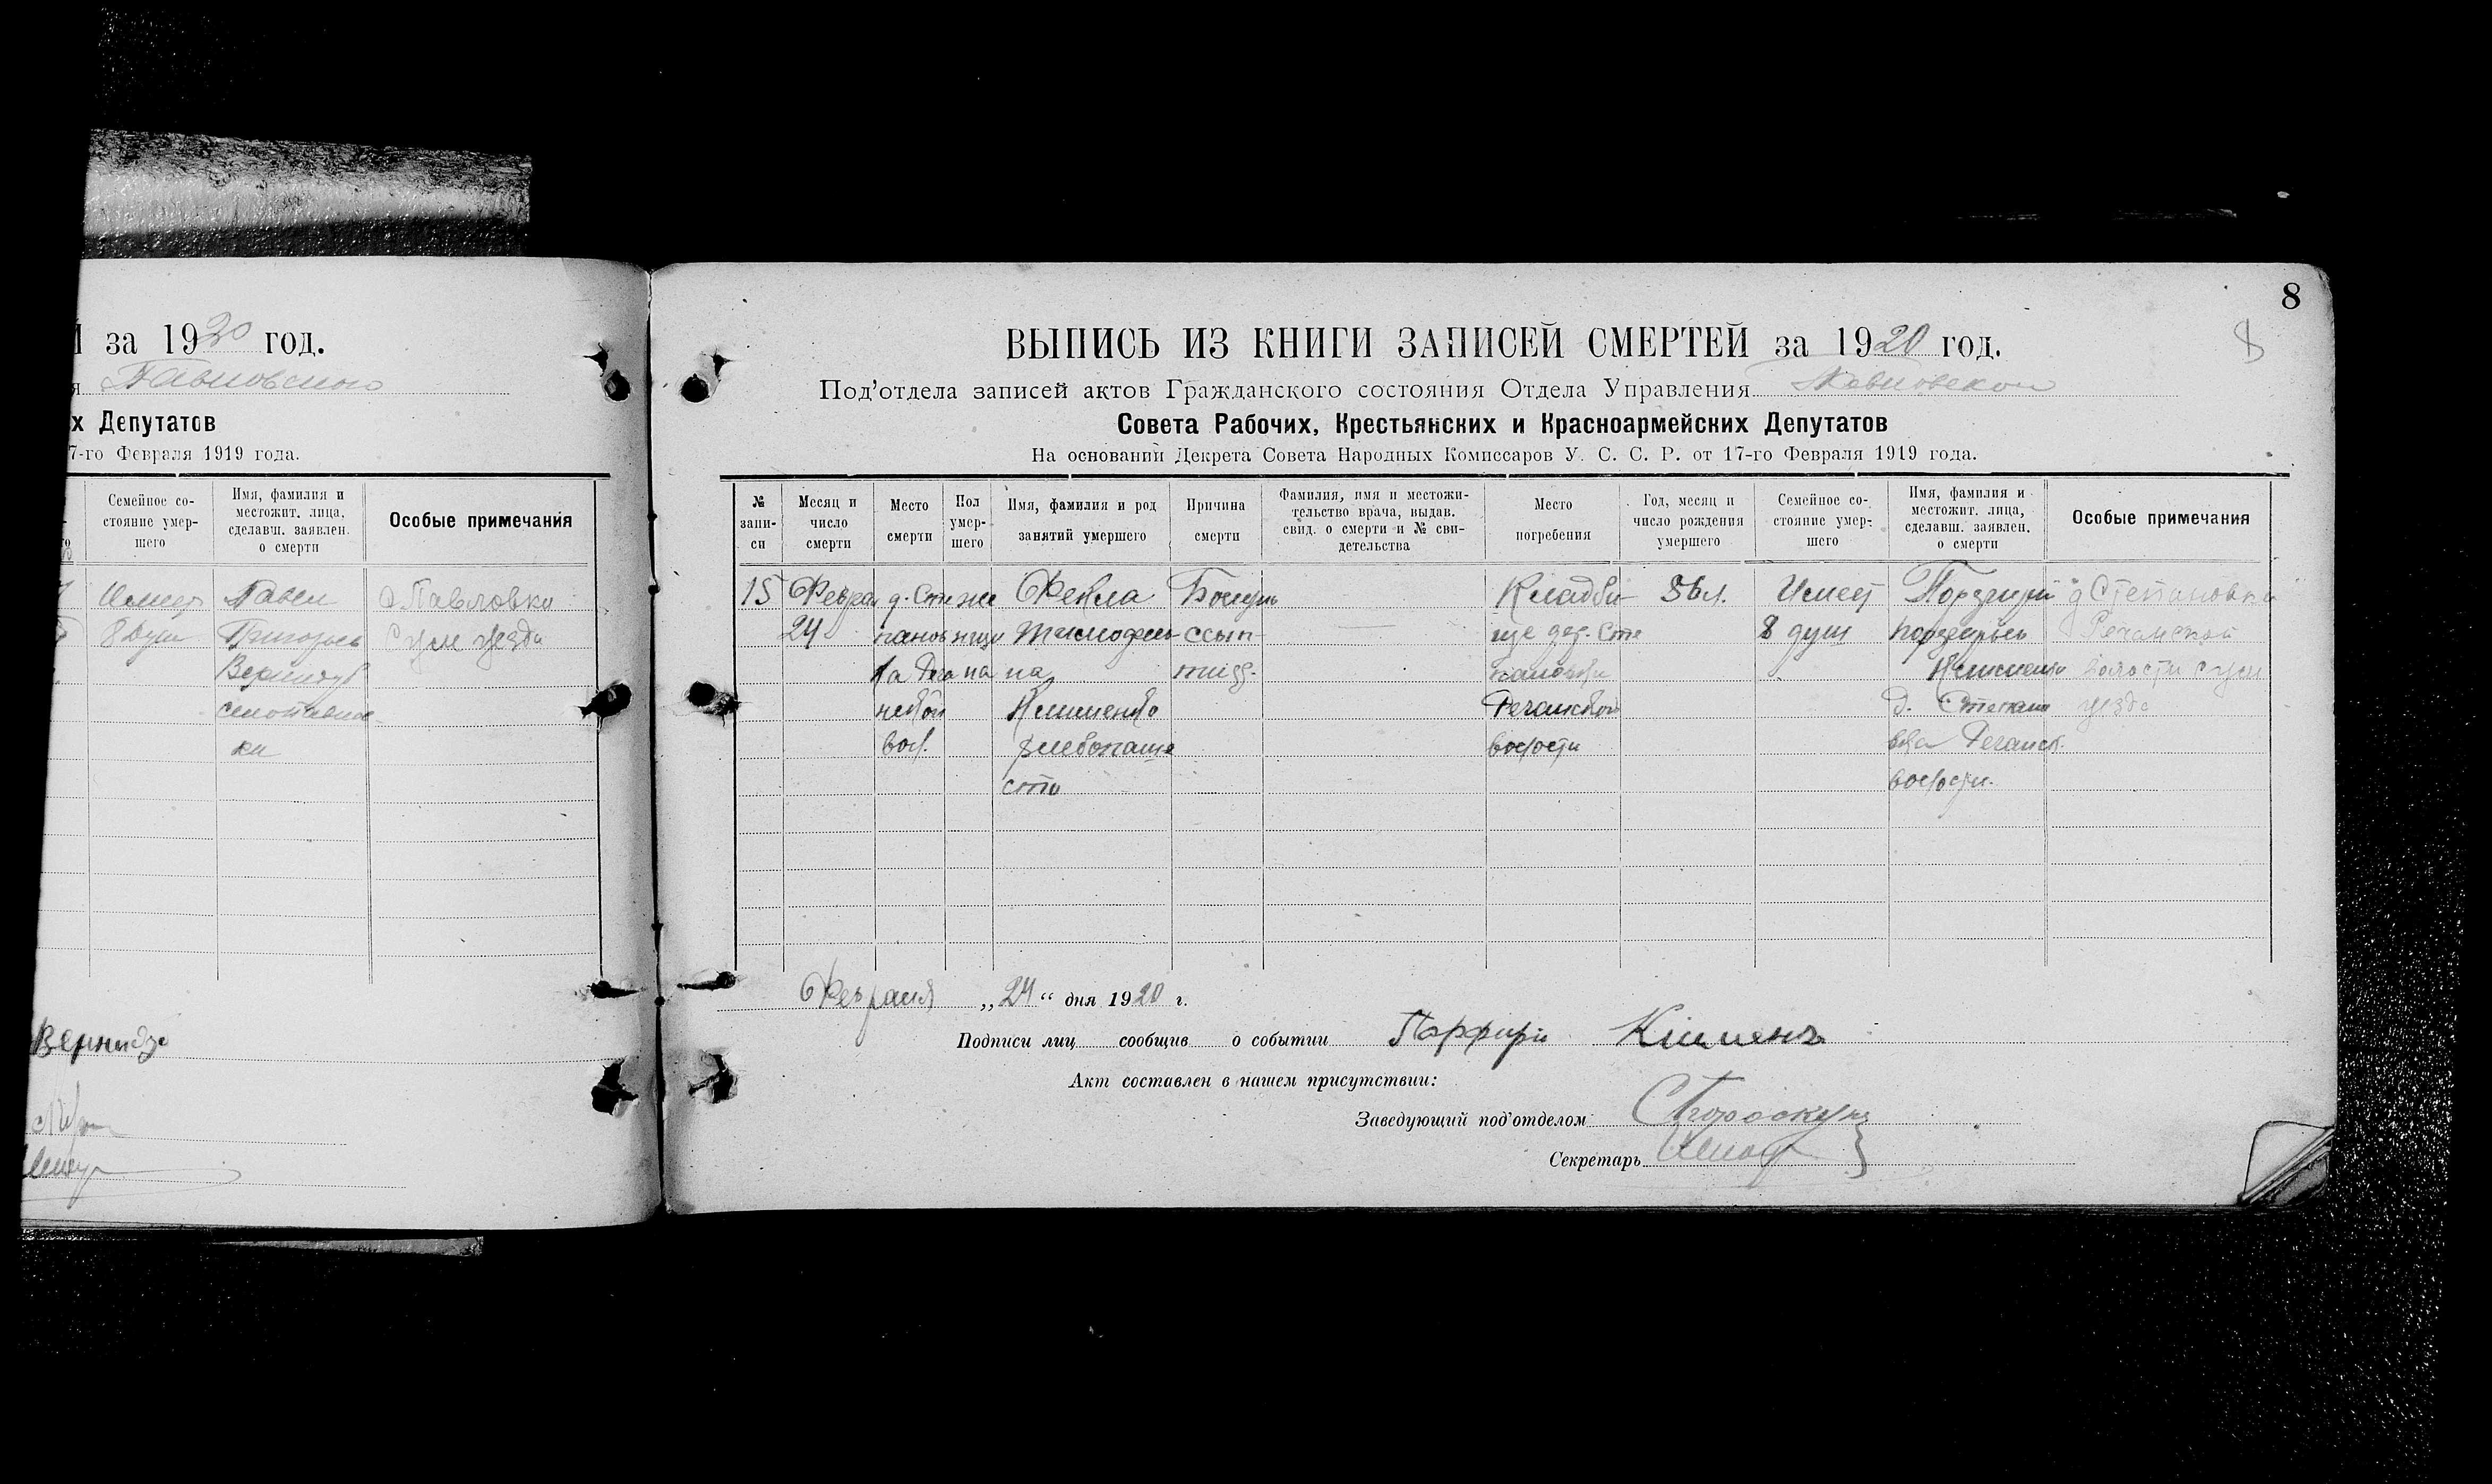 за 1920 год.
Павловского
х Депутатов
7-го Февраля 1919 года.
Семейное со-
стояние умер-
шего
Имя, фамилия и
местожит. лица,
сделавш. заявлен.
о смерти
Особые примечания
Имеет
8 душ
Павел
Григорьев
ки
с Павловка
Сум уезда
8
8
ВЫПИСЬ ИЗ КНИГИ ЗАПИСЕЙ СМЕРТЕЙ за 1920 год.
Под’отдела записей актов Гражданского состояния Отдела Управления
Совета Рабочих, Крестьянских и Красноармейских Депутатов
На основании Декрета Совета Народных Комиссаров У. С. С. Р. от 17-го Февраля 1919 года.
№
запи-
си
Месяц и
число
смерти
Место
смерти
Пол
умер-
шего
Имя, фамилия и род
занятий умершего
Причина
смерти
Фамилия, имя и местожи-
тельство врача, выдав.
свид. о смерти и № сви-
детельства
Место
погребения
Год, месяц и
число рождения
умершего
Семейное со-
стояние умер-
шего
Имя, фамилия и
местожит. лица,
сделавш. заявлен.
о смерти
Особые примечания
15
Феврал
24
д. Сте
панов
ка Реча
нской
вол.
же
нщи
на
Фекла
Тимофее-
на
Клименко
хлебопаше
ство
ссып
Кладби-
ще дер. Сте
пановки
Речанской
волости
Имеет
8 душ
Порфирий
Порфирьев
Клименко
д. Степано
вка Речанск.
волости.
д Степановка
Речанской
волости Сум
уезда
Февраля „24“ дня 1920 г.
Подписи лиц сообщив о событии Порфири
Акт составлен в нашем присутствии:
Заведующий под’отделом
Секретарь